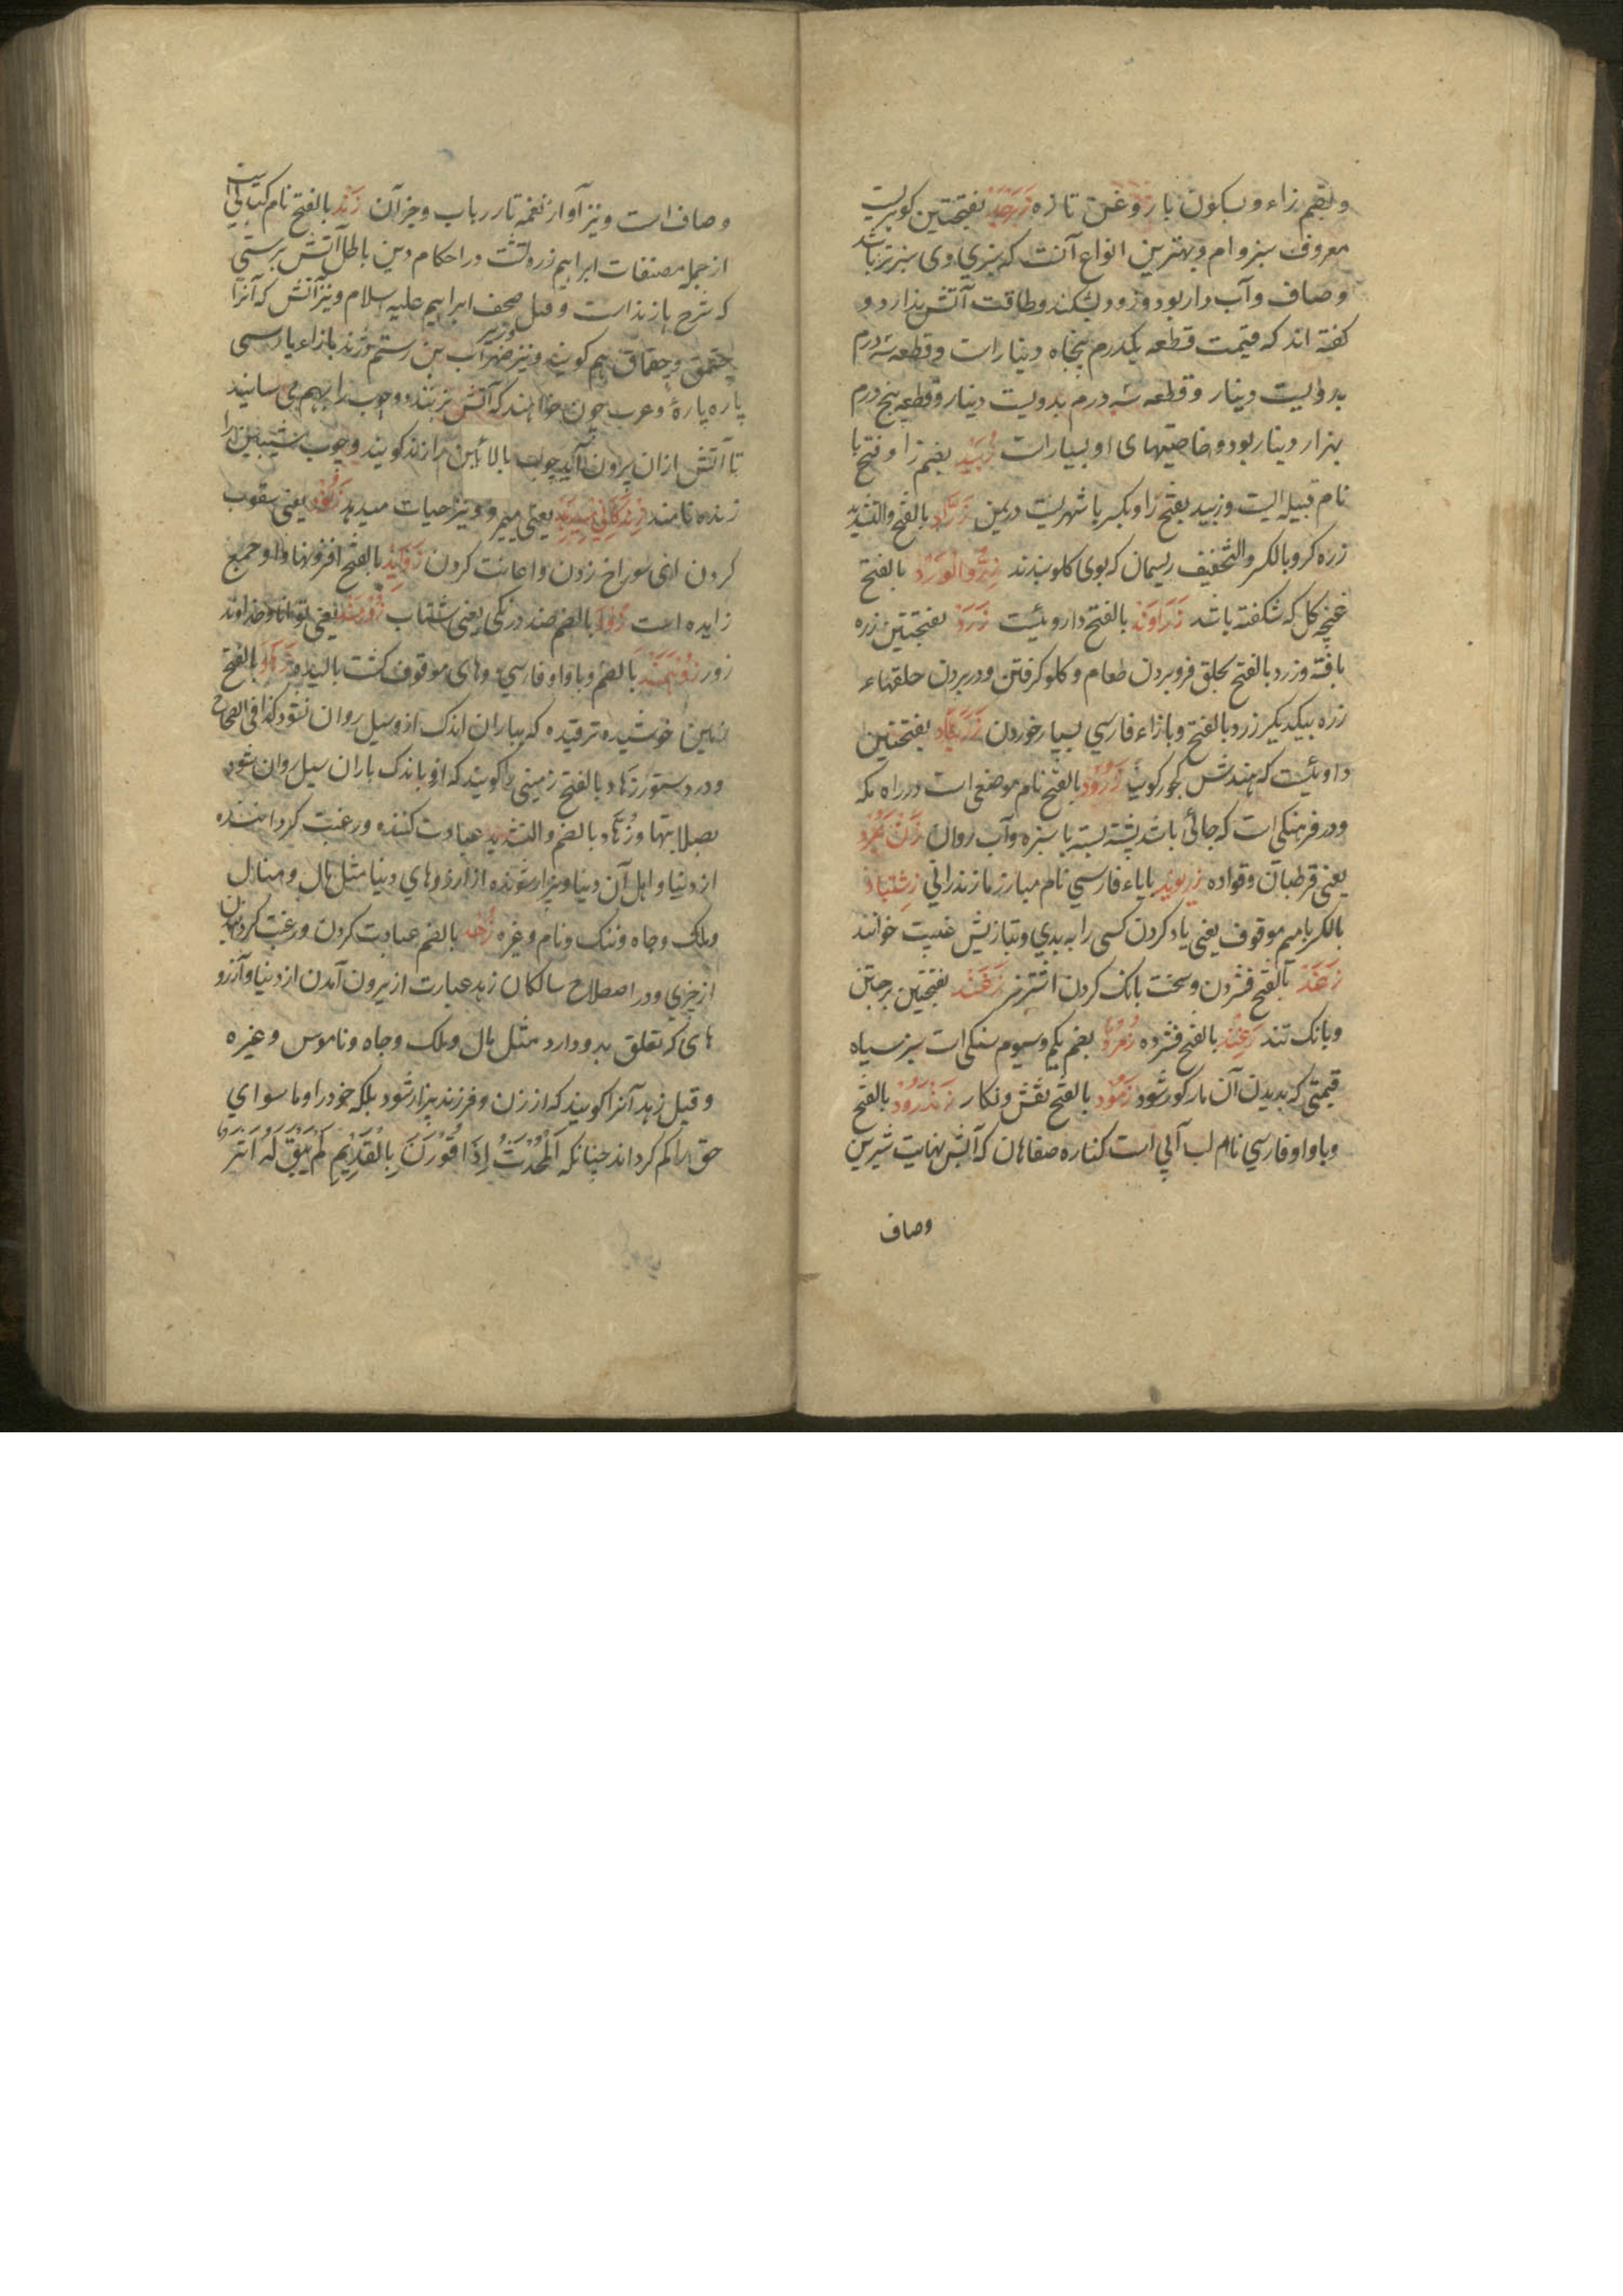 وبضم زاء وبسکون با روغن تازه زبرجد بفتحتین کوهریست
معروف سبز وام وبهترین انواع آنست که سبزی وی سبزتر باشد
وصاف وآب دار بود وزود بشکند وطاقت آتش ندارد و
کفته اند که قیمت قطعه یکدرم پنجاه دینار است وقطعه سه درم
بدویست دینار وقطعه سه درم بدویست دینار وقطعه پنج درم
بهزار دینار بود وخاصیتهای او بسیار است زبید بضم زا وفتح با
نام قبیله ایست وزبید بفتح زا وبکسر با شهریست در یمن زراد بالفتح والتشدید
زره کر وبالکسر والتخفیف ریسمان که بوی کلو بندند بالفتح
غنچه کل که شکفته باشد زراوند بالفتح داروئیست زرد بفتحتین زره
بافته وزرد بالفتح بحلق فرو بردن طعام وکلو کرفتن ودر بردن حلقهاء
زره بیکدیکر زرد بالفتح وبا زاء فارسی بسیار خوردن زرنباد بفتحتین
داروئیست که هندش کجور کویند زرود بالفتح نام موضعی است در راه مکه
ودر فرهنکی است که جائی باشد پشته پشته با سبزه وآب روان زن بمزد
یعنی قرطبان وقواده زریوند بایاء فارسی نام مبارز مازندرانی زشتیاد
بالکسر بامیم موقوف یعنی یاد کردن کسی را به بدی وبتازیش غیبت خوانند
زغد بالفتح فشردن وسخت بانک کردن اشتر نر زغند بفتحتین برجستن
وبانک تند بالفتح فشرده زمرد بضم یکم وسیوم سنکی است سبز سیاه
قیمتی که بدیدن آن مار کور شود زمود بالفتح نقش ونکار زندرود بالفتح
وباواو فارسی نام لب آبی است کناره صفاهان که آبش بنهایت شیرین
وصاف
وصاف است ونیز آواز نغمه تار رباب وجز آن زند بالفتح نام کتابی است
از جمله مصنفات ابراهیم زرد هشت در احکام دین باطل آتش پرستی
که شرح پازند است وقیل صحف ابراهیم علیه السلام ونیز آتش که آنرا
چقمق وچقماق هم کویند ونیز وزیر سهراب بن رستم وژند بازاء پارسی
پاره پاره وعرب چون خواهند که آتش بزنند دو چوب را بهم می سایند
تا آتش ازان بیرون آید چوب بالائین را زند کویند وچوب شیبین را
زنده نامند زندکانی میدهد یعنی میمیرد ونیز حیات میدهد یعنی بیقوب
کردن اینی سوراخ زدن واعانت کردن زواید بالفتح افزونیها واو جمع
زایده است زود بالضم ضد درنکی یعنی شتاب زورمند یعنی توانا وخداوند
زور بالضم وباواو فارسی وهای موقوف کشت بالیده زهاد بالفتح
زمین خوشیده ترقیده که بباران اندک ازو سیل روان نشود کذا فی الصحاح
ودر دستور زهاد بالفتح زمینی را کویند که ازو باندک باران سیل روان شود
بصلابتها وزهاد بالضم والتشدید عبادت کننده ورغبت کرداننده
از دنیا واهل آن دنیا وبیزار شونده از آرزوهای دنیا مثل مال ومنازل
وملک وجاه وننک ونام وغیره زهد بالضم عبادت کردن ورغبت کردانیدن
از چیزی ودر اصطلاح سالکان زهد عبارت از بیرون آمدن از دنیا وآرزو
های که تعلق بدو دارد مثل مال وملک وجاه وناموس وغیره
وقیل زهد آنرا کویند که از زن وفرزند بیزار شود بلکه خود را وما سوای
حق را کم کرداند چنانکه اَلْمُحْدَثُ اِذَا قُوْرِنَ بِالْقَدِیْمِ لَمْ یَبْقَ لَهُ اَثَر